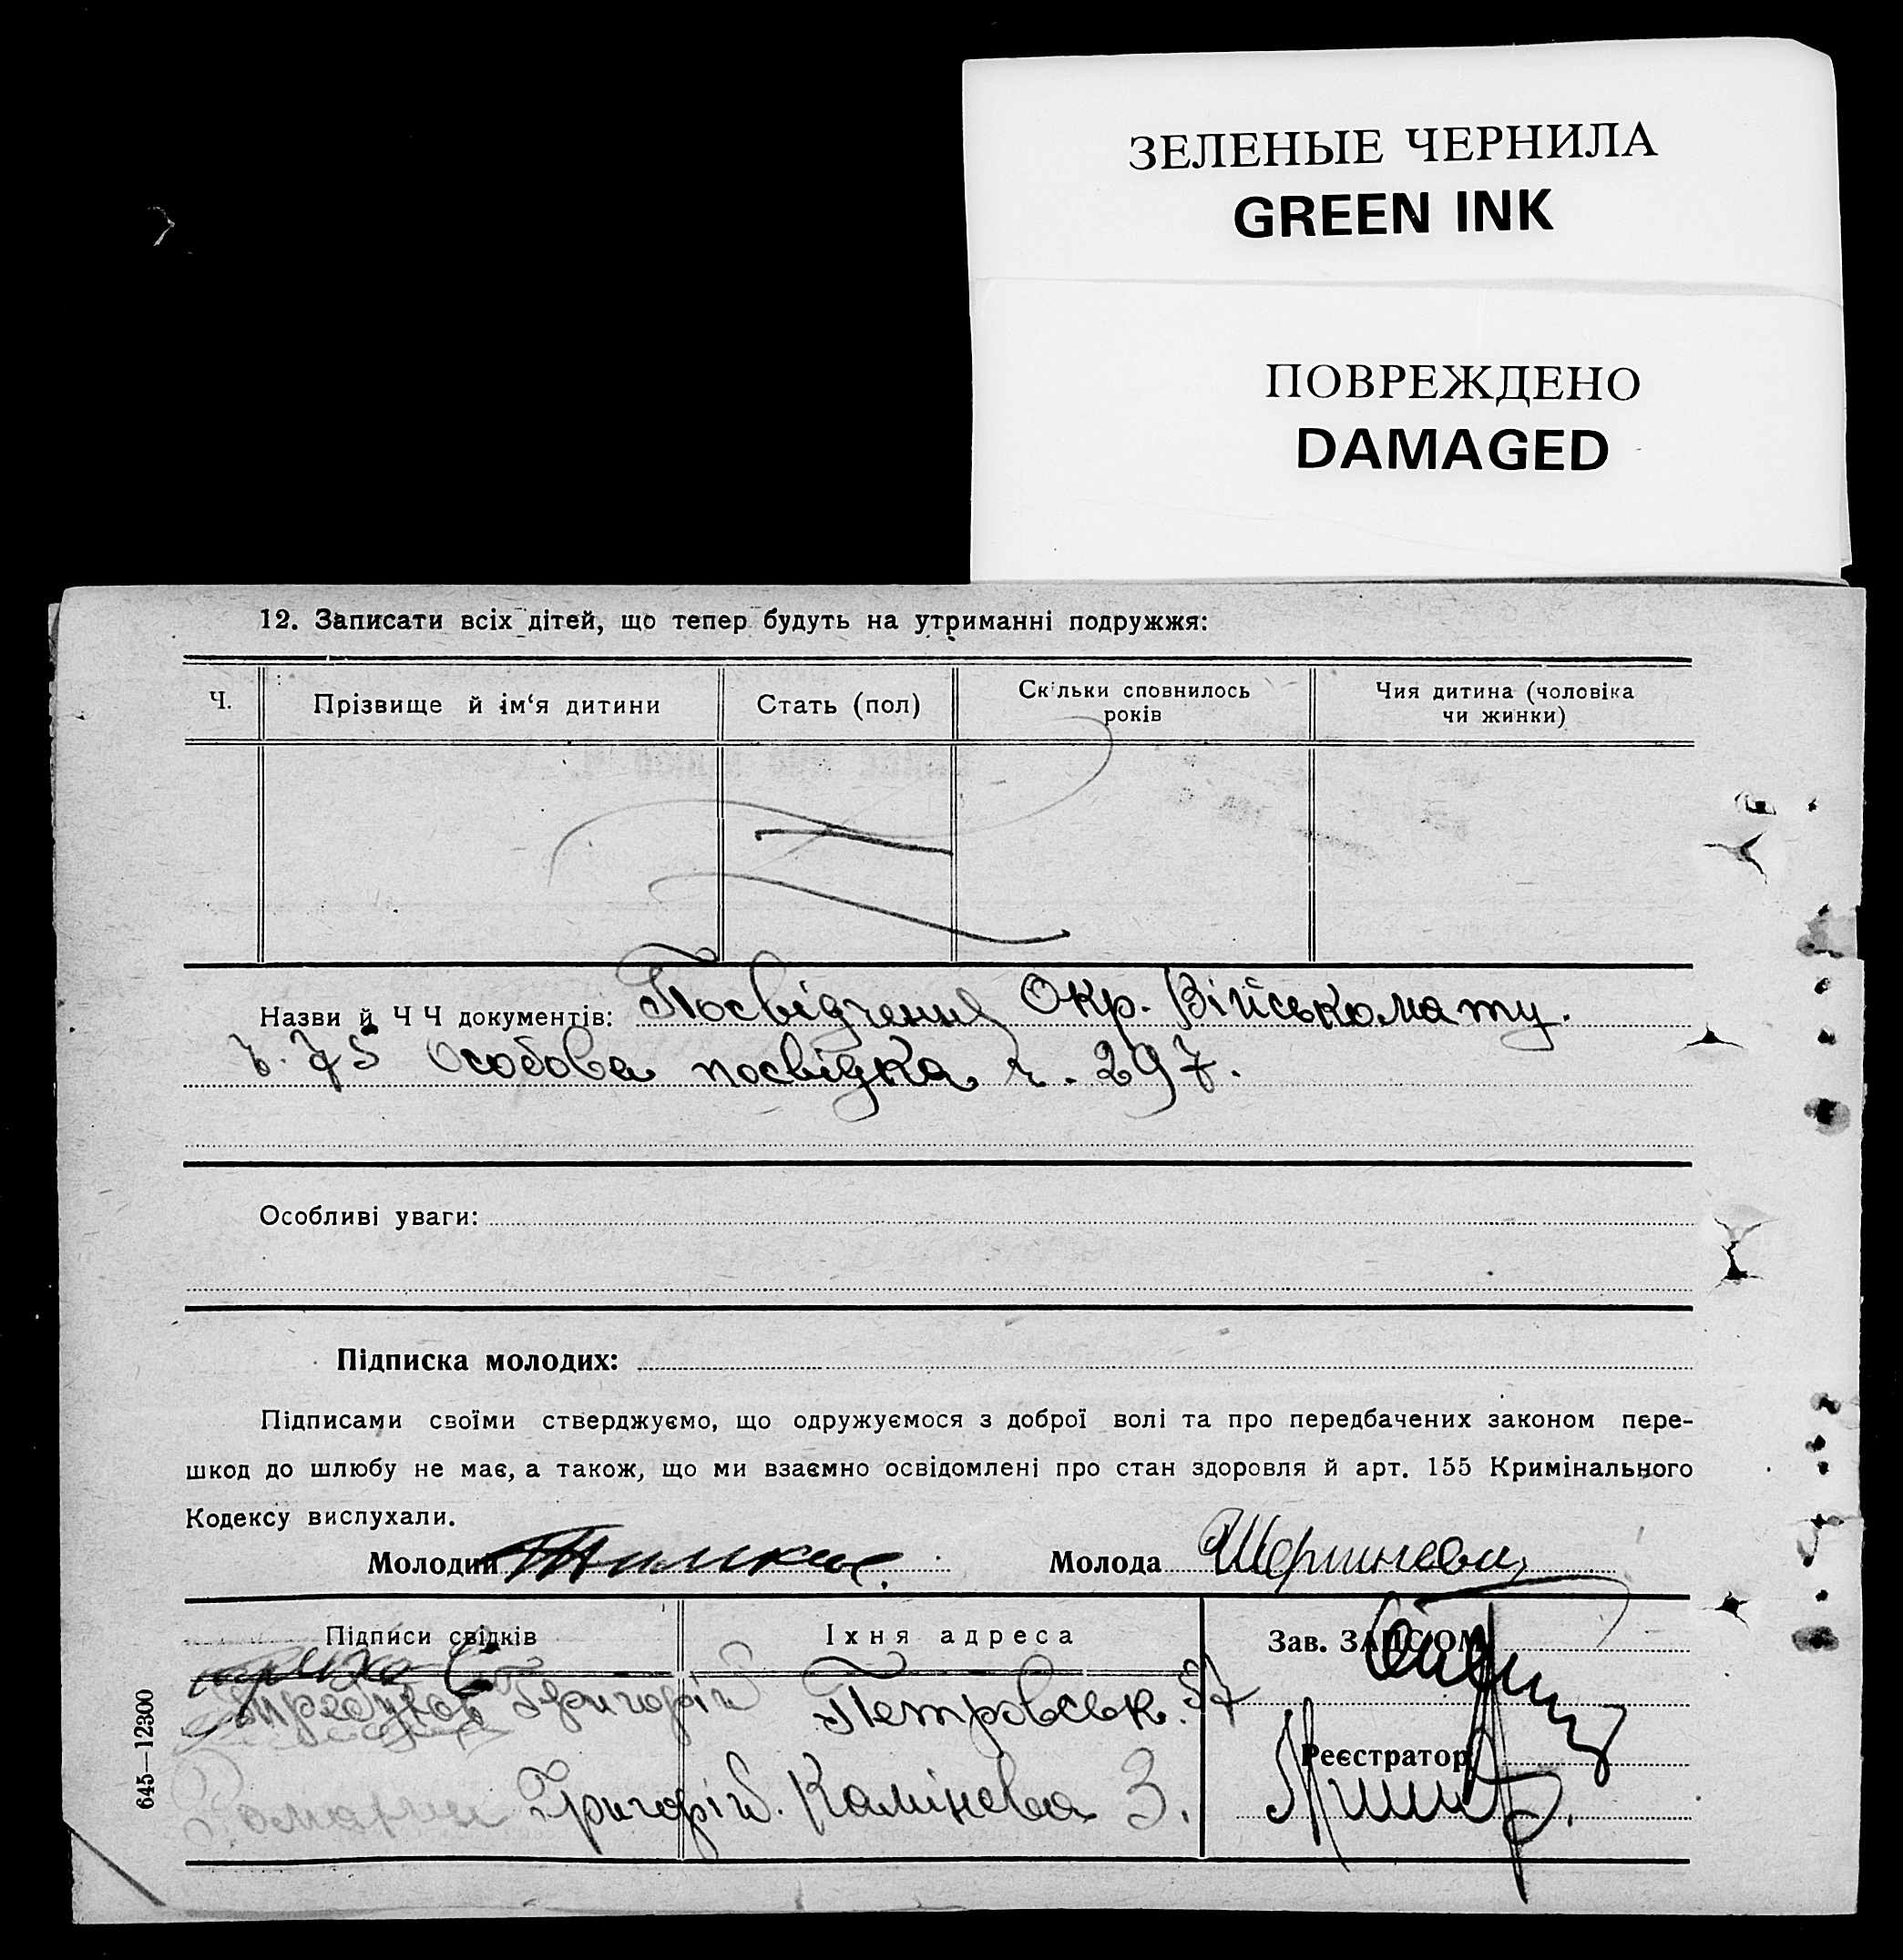 ЗЕЛЕНЫЕ ЧЕРНИЛА
GREEN INK
ПОВРЕЖДЕНО
DAMAGED
12. Записати всіх дітей, що тепер будуть на утриманні подружжя:
Ч. Прізвище й ім‘я дитини Стать (пол) Скільки сповнилось років Чия дитина (чоловіка чи жинки)
Назви й Ч Ч документів: Посвідчення Окр. Військомату.
ч. 75 Особова посвідка ч. 297.
Особливі уваги:
Підписка молодих:
Підписами своїми стверджуємо, що одружуємося з доброї волі та про передбачених законом пере-
шкод до шлюбу не має, а також, що ми взаємно освідомлені про стан здоровля й арт. 155 Кримінального
Кодексу вислухали.
Молодий Молода
Підписи свідків Їхня адреса Зав. ЗАПС'ОМ
Григорій Петровськ. 57
Реєстратор
Григорій. Камінева 3.
645—12300